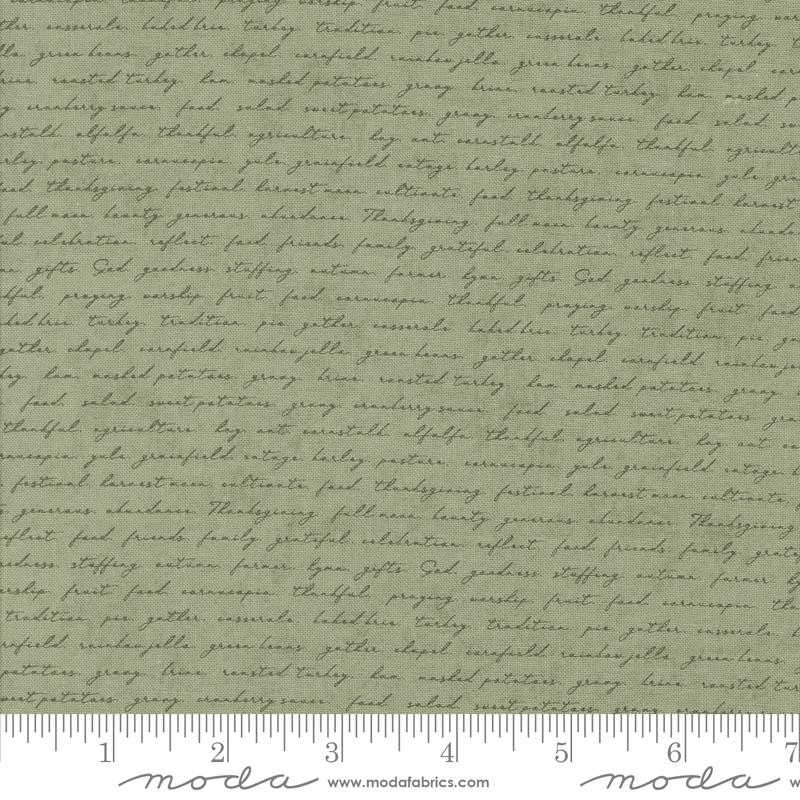 cornucopia. thankful. praying worship fruit. food. cornucopia. thankful. praying wor
ther. casserole. baked brie. turkey. tradition. pie. gather. casserole. baked brie. turkey. t
lla. green beans. gather. chapel. cornfield. rainbow jello. green beans. gather. chapel. cor
rine. roasted turkey. ham. mashed potatoes. gravy. brine. roasted turkey. ham. mashed p
y. cranberry sauce. food. salad. sweet potatoes. gravy. cranberry sauce. food. salad. sw
nstalk. alfalfa. thankful. agriculture. hay. oat. cornstalk. alfalfa. thankful. agricult
rley. pasture. cornucopia. yule. grainfield. cotage. barley. pasture. cornucopia. yule. gra
ood. thanksgiving. festival. harvest moon. cultivate. food. thanksgiving. festival. harvest
full moon. bounty. generous. abundance. Thanksgiving. full moon. bounty. generous. abunda
ul. celebration. reflect. food. friends. family. grateful. celebration. reflect. food. frien
mn. gifts. God. goodness. stuffing. autumn. farmer. hymn. gifts. God. goodness. stuffing. a
kful. praying worship fruit. food. cornucopia. thankful. praying worship fruit. food
ked brie. turkey. tradition. pie. gather. casserole. baked brie. turkey. tradition. pie. ga
gather. chapel. cornfield. rainbow jello. green beans. gather. chapel. cornfield. rainbow je
key. ham. mashed potatoes. gravy. brine. roasted turkey. ham. mashed potatoes. gravy.
food. salad. sweet potatoes. gravy. cranberry sauce. food. salad. sweet potatoes. gra
thankful. agriculture. hay. oat. cornstalk. alfalfa. thankful. agriculture. hay. oat. co
rnucopia. yule. grainfield. cotage. barley. pasture. cornucopia. yule. grainfield. cotage. b
festival. harvest moon. cultivate. food. thanksgiving. festival. harvest moon. cultivate.
generous. abundance. Thanksgiving. full moon. bounty. generous. abundance. Thanksgiving.
eflect. food. friends. family. grateful. celebration. reflect. food. friends. family. grate
odness. stuffing. autumn. farmer. hymn. gifts. God. goodness. stuffing. autumn. farmer. hy
orship fruit. food. cornucopia. thankful. praying worship fruit. food. cornucopia. tha
tradition. pie. gather. casserole. baked brie. turkey. tradition. pie. gather. casserole. b
rnfield. rainbow jello. green beans. gather. chapel. cornfield. rainbow jello. green beans.
potatoes. gravy. brine. roasted turkey. ham. mashed potatoes. gravy. brine. roasted tur
weet potatoes. gravy. cranberry sauce. food. salad. sweet potatoes. gravy. cranberry
1 2 3 4 5 6 7
moda www.modafabrics.com moda w